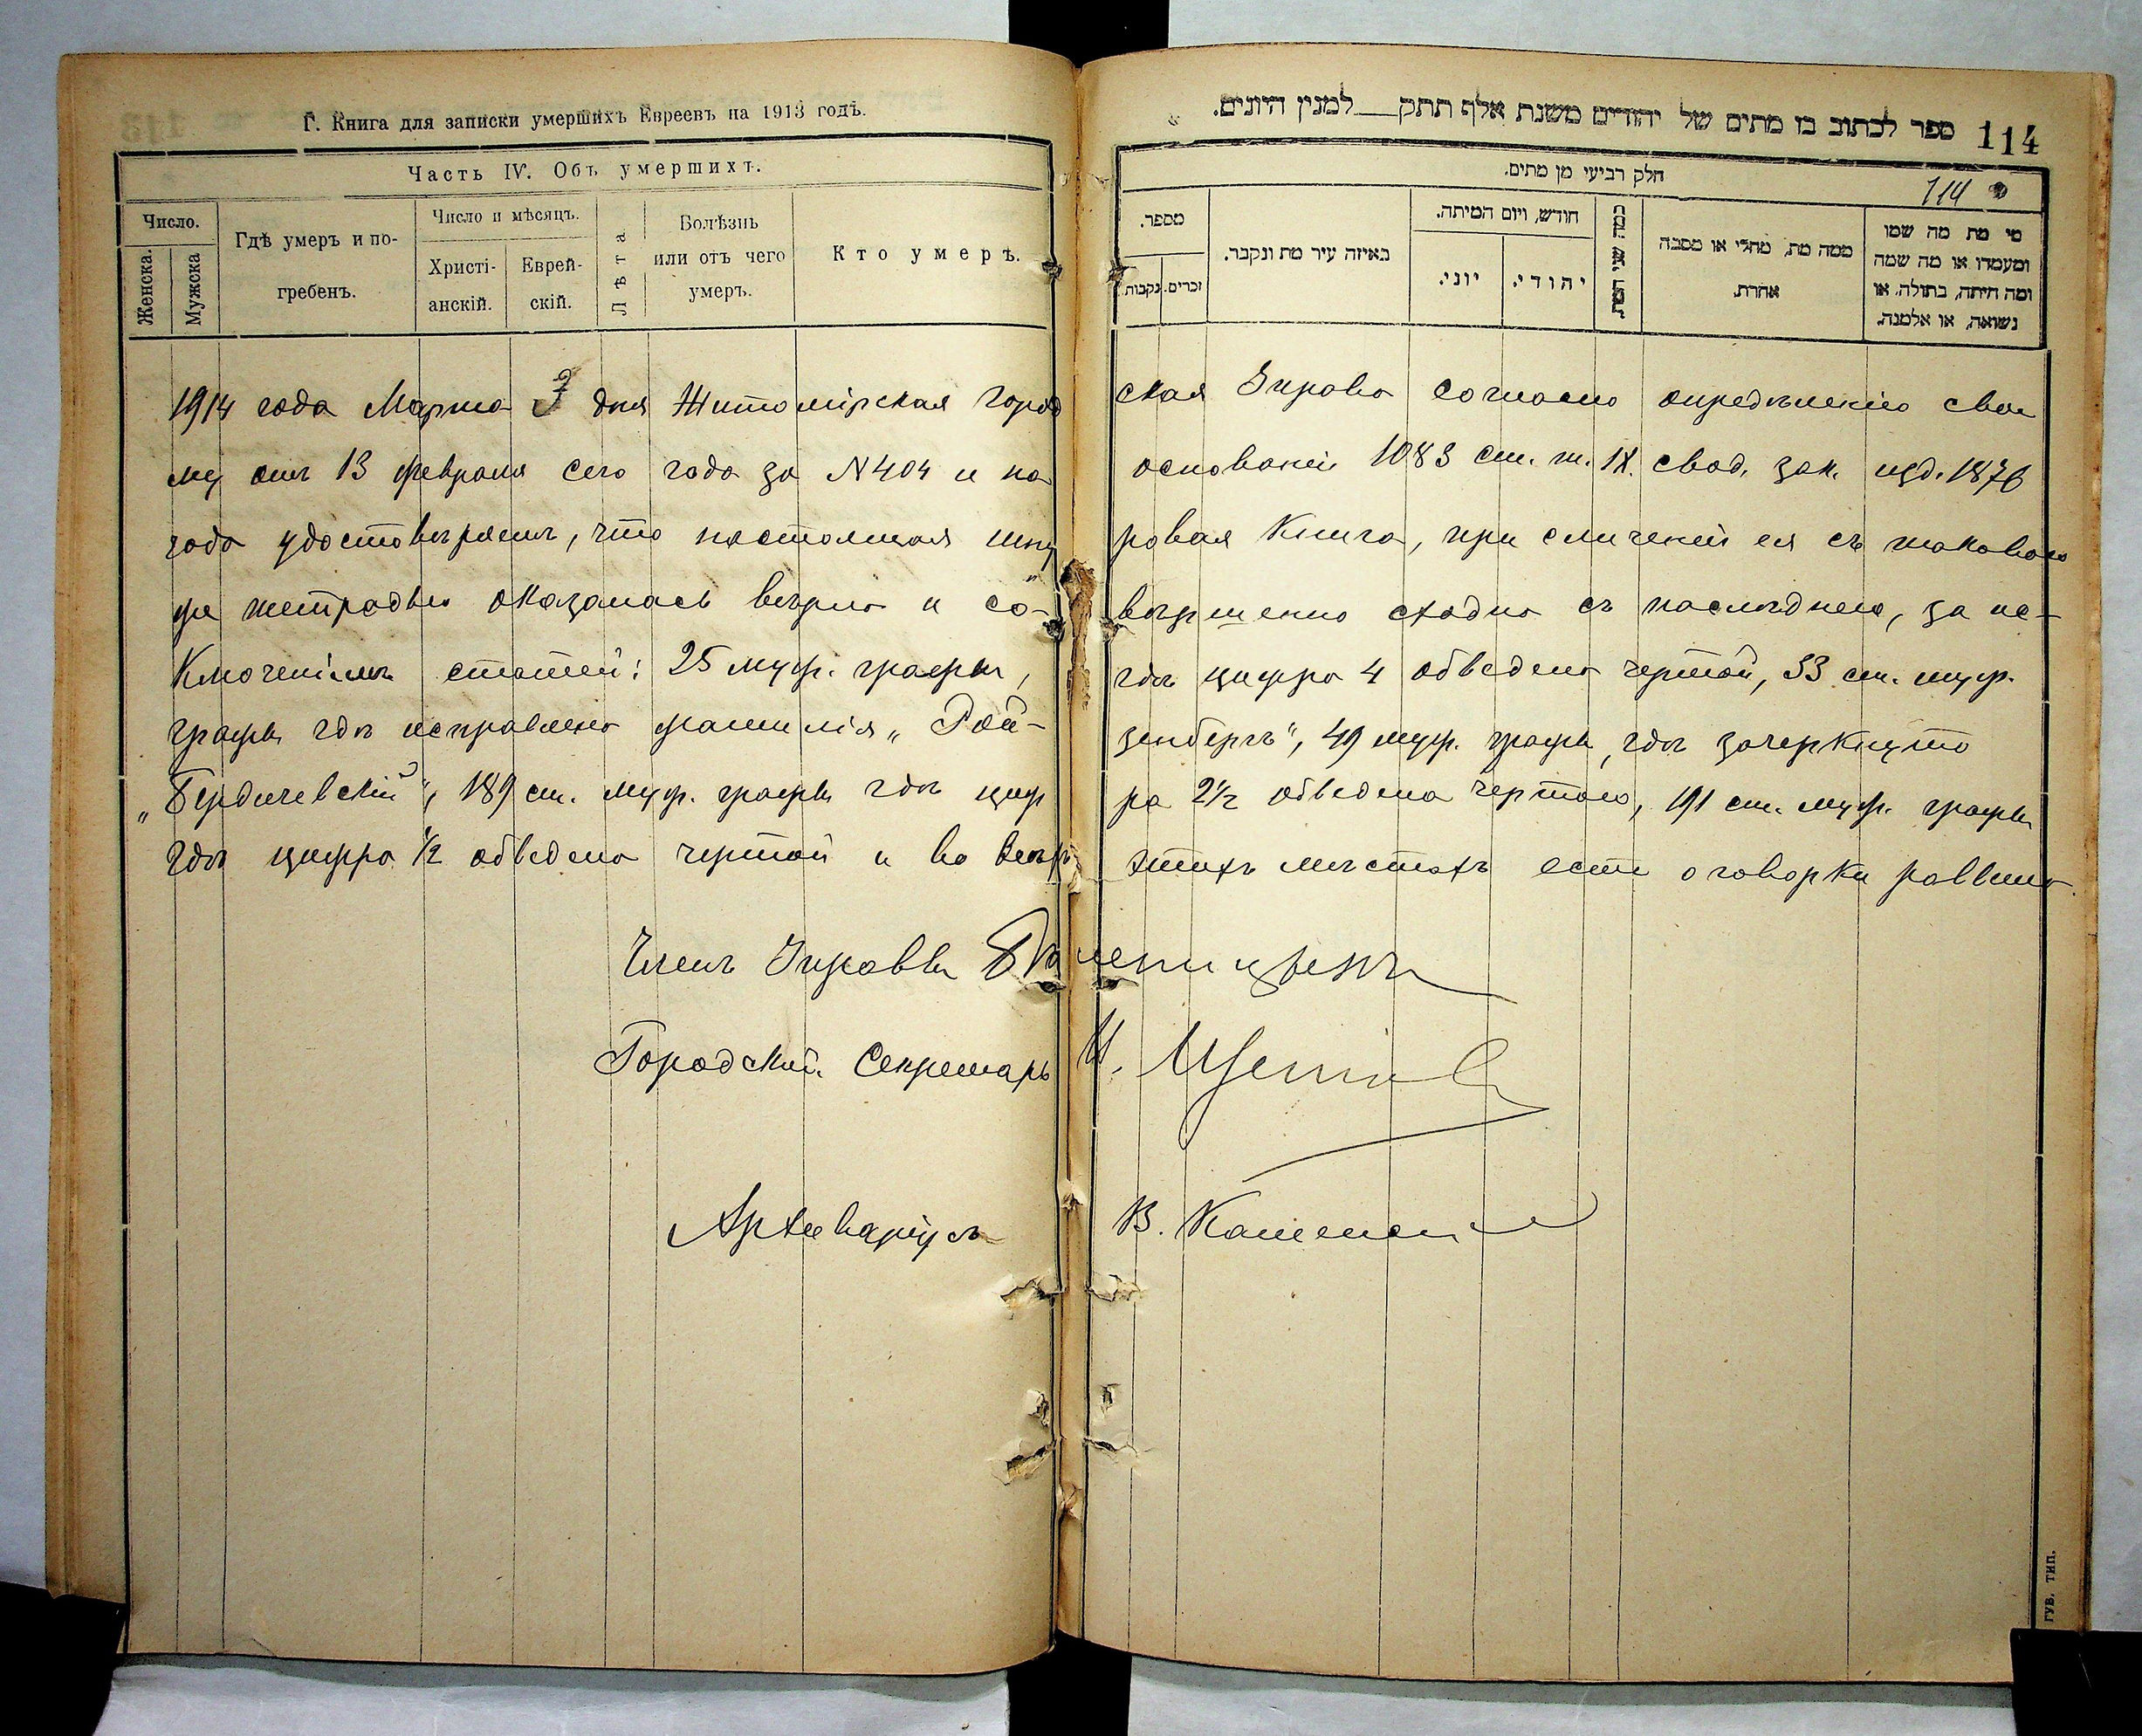 Г. Книга для записки умершихъ Евреевъ на 1913 годъ.
Часть IV. Объ умершихъ.
Число.
Женска.
Мужска
Гдѣ умеръ и по-
гребенъ.
Число и мѣсяцъ.
Христі-
анскій.
Еврей-
скій.
Лѣта
Болѣзнь
или отъ чего
умеръ.
Кто умеръ.
ספר לכתוב בו מתים של יהודים משנת אלף תתק__למנין היונים.
114
חלק רביעי מן מתים.
114
מספר.
זכרים.
נקבות.
באיזה עיר מת ונקבר.
חודש, ויום המיתה.
יוני.
יהודי.
כמה שני המת.
ממה מת, מחלי או מסבה
אחרת.
מי מת מה שמו
ומעמדו או מה שמה
ומה היתה, בתולה, או
נשואה, או אלמנה.
1914 года Марта 3 дня Житомірская Город ская Управа согласно опредѣленію сво
му отъ 13 февраля сего года за N 404 и на основаніи 1083 ст. т. IX. свод. зак. изд. 1876
года удостовѣряетъ, что настоящая шну ровая Книга, при сличеніи ея съ таковою
же тетрадью оказалась вѣрна и со- вершенно сходна съ послѣднею, за ис-
ключеніемъ статей: 25 муж. графы, гдѣ цифра 4 обведена чертой, 33 ст. муж.
графы гдѣ исправлена фамилія „Рой- зенбергъ", 49 муж. графы, гдѣ зачеркнуто
„Бердичевскій", 189 ст. муж. графы гдѣ циф ра 2½ обведена чертою, 191 ст. муж. графы
гдѣ цифра ½ обведена чертой и во всѣхъ этихъ мѣстахъ есть оговорки раввина.
Членъ Управы
Городской Секретарь И.
Архиваріусъ В.
ГУБ. ТИП.